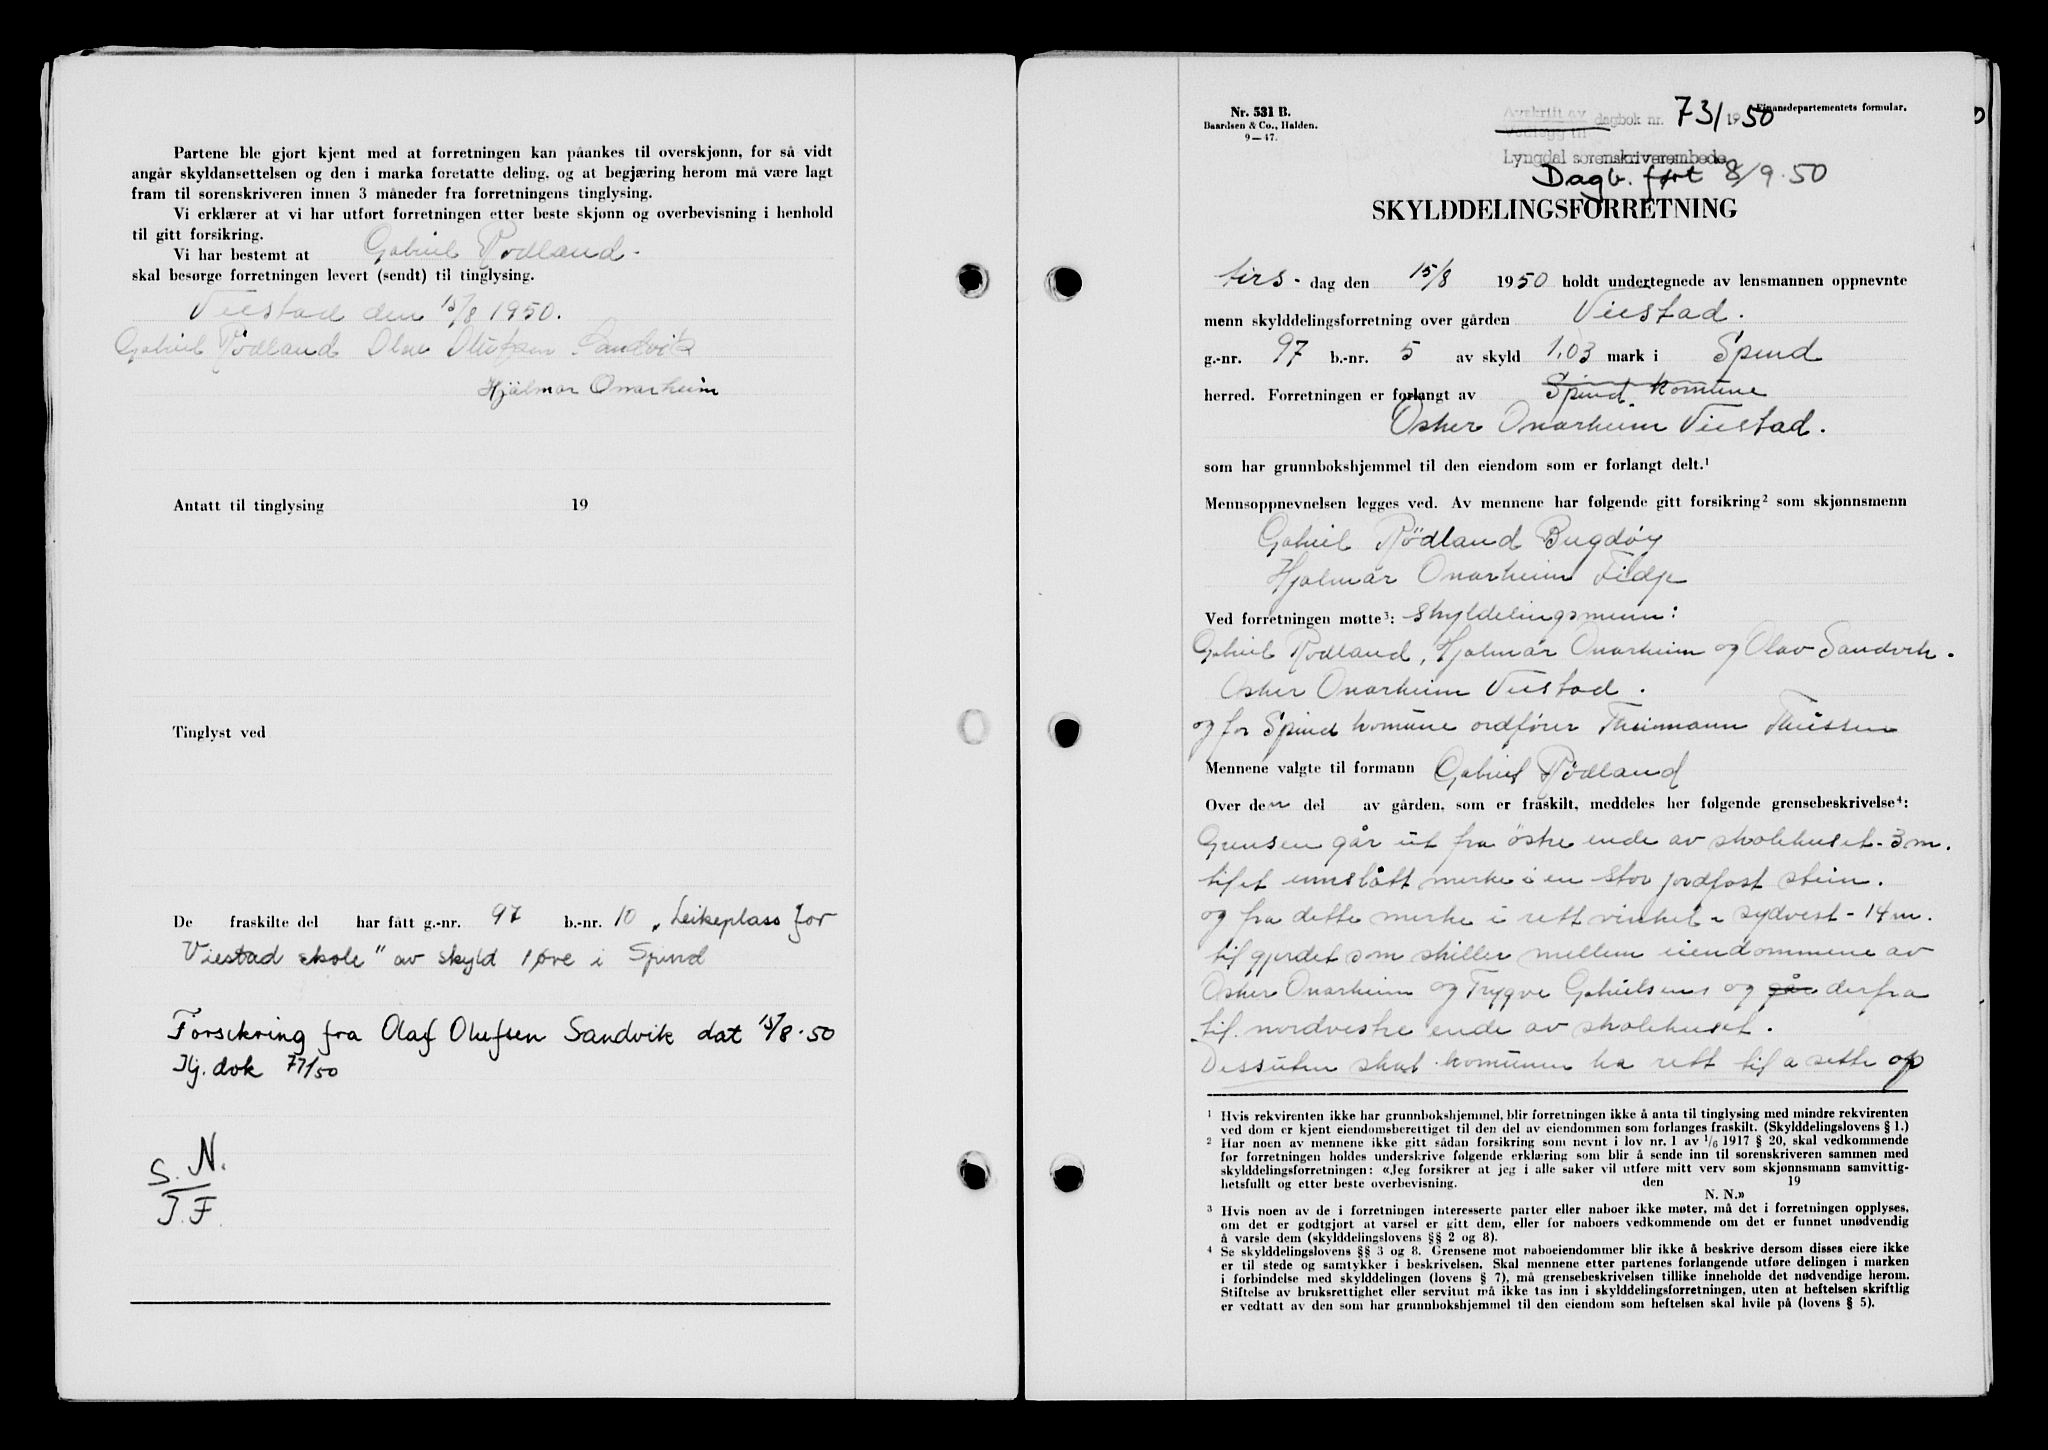 Partene ble gjort kjent med at forretningen kan påankes til overskjønn, for så vidt
angår skyldansettelsen og den i marka foretatte deling, og at begjæring herom må være lagt
fram til sorenskriveren innen 3 måneder fra forretningens tinglysing.
Vi erklærer at vi har utført forretningen etter beste skjønn og overbevisning i henhold
til gitt forsikring.
Vi har bestemt at Gabriel Rødland.
skal besørge forretningen levert (sendt) til tinglysing.
Viestad den 15/8 1950.
Gabriel Rödland Olav Olufsen Sandvik
Hjälmar Onarheim
Antatt til tinglysing 19
Tinglyst ved
De fraskilte del har fått g.-nr. 97 b.-nr. 10 „Leikeplass for
Viestad skole" av skyld 1 øre i Spind
Forsikring fra Olaf Olufsen Sandvik dat 15/8-50
Hj. dok 77/50
S. N.
J. F.
Nr. 531 B.
Baardsen & Co., Halden.
9—47.
Avskrift av
dagbok nr. 73/1950
Finansdepartementets formular.
Lyngdal sorenskriverembede
Dagb. ført 8/9-50
SKYLDDELINGSFORRETNING
tirs- dag den 15/8 1950 holdt undertegnede av lensmannen oppnevnte
menn skylddelingsforretning over gården Viestad.
g.-nr. 97 b.-nr. 5 av skyld 1,03 mark i Spind
herred. Forretningen er forlangt av Spind komune
Osker Onarheim Viestad.
som har grunnbokshjemmel til den eiendom som er forlangt delt.¹
Mennsoppnevnelsen legges ved. Av mennene har følgende gitt forsikring² som skjønnsmenn
Gabriel Rödland Bugdøy
Hjalmar Onarheim Fidje
Ved forretningen møtte³: skyldelingsmenn:
Gabriel Rødland, Hjalmar Onarheim og Olav Sandvik.
Osker Onarheim Viestad.
og for Spind komune ordfører Theinmann Theissen
Mennene valgte til formann Gabriel Rödland
Over den del av gården, som er fraskilt, meddeles her følgende grensebeskrivelse⁴:
Grensen går ut fra östre ende av skolehuset - 3 m.
til et innslått merke i en stor jordfast stein.
og fra dette merke i rett vinkel - sydvest - 14 m.
til gjerdet som skiller mellem eiendommene av
Osker Onarheim og Trygve Gabrielsens og går derfra
til nordvestre ende av skolehuset.
Dessuten skal komunen ha rett til a sette op
¹ Hvis rekvirenten ikke har grunnbokshjemmel, blir forretningen ikke å anta til tinglysing med mindre rekvirenten
ved dom er kjent eiendomsberettiget til den del av eiendommen som forlanges fraskilt. (Skylddelingslovens § 1.)
² Har noen av mennene ikke gitt sådan forsikring som nevnt i lov nr. 1 av 1/6 1917 § 20, skal vedkommende
før forretningen holdes underskrive følgende erklæring som blir å sende inn til sorenskriveren sammen med
skylddelingsforretningen: «Jeg forsikrer at jeg i alle saker vil utføre mitt verv som skjønnsmann samvittig-
hetsfullt og etter beste overbevisning. den 19
N. N.»
³ Hvis noen av de i forretningen interesserte parter eller naboer ikke møter, må det i forretningen opplyses,
om det er godtgjort at varsel er gitt dem, eller for naboers vedkommende om det er funnet unødvendig
å varsle dem (skylddelingslovens §§ 2 og 8).
⁴ Se skylddelingslovens §§ 3 og 8. Grensene mot naboeiendommer blir ikke å beskrive dersom disses eiere ikke
er til stede og samtykker i beskrivelsen. Skal mennene etter partenes forlangende utføre delingen i marken
i forbindelse med skylddelingen (lovens § 7), må grensebeskrivelsen tillike inneholde det nødvendige herom.
Stiftelse av bruksrettighet eller servitut må ikke tas inn i skylddelingsforretningen, uten at heftelsen skriftlig
er vedtatt av den som har grunnbokshjemmel til den eiendom som heftelsen skal hvile på (lovens § 5).